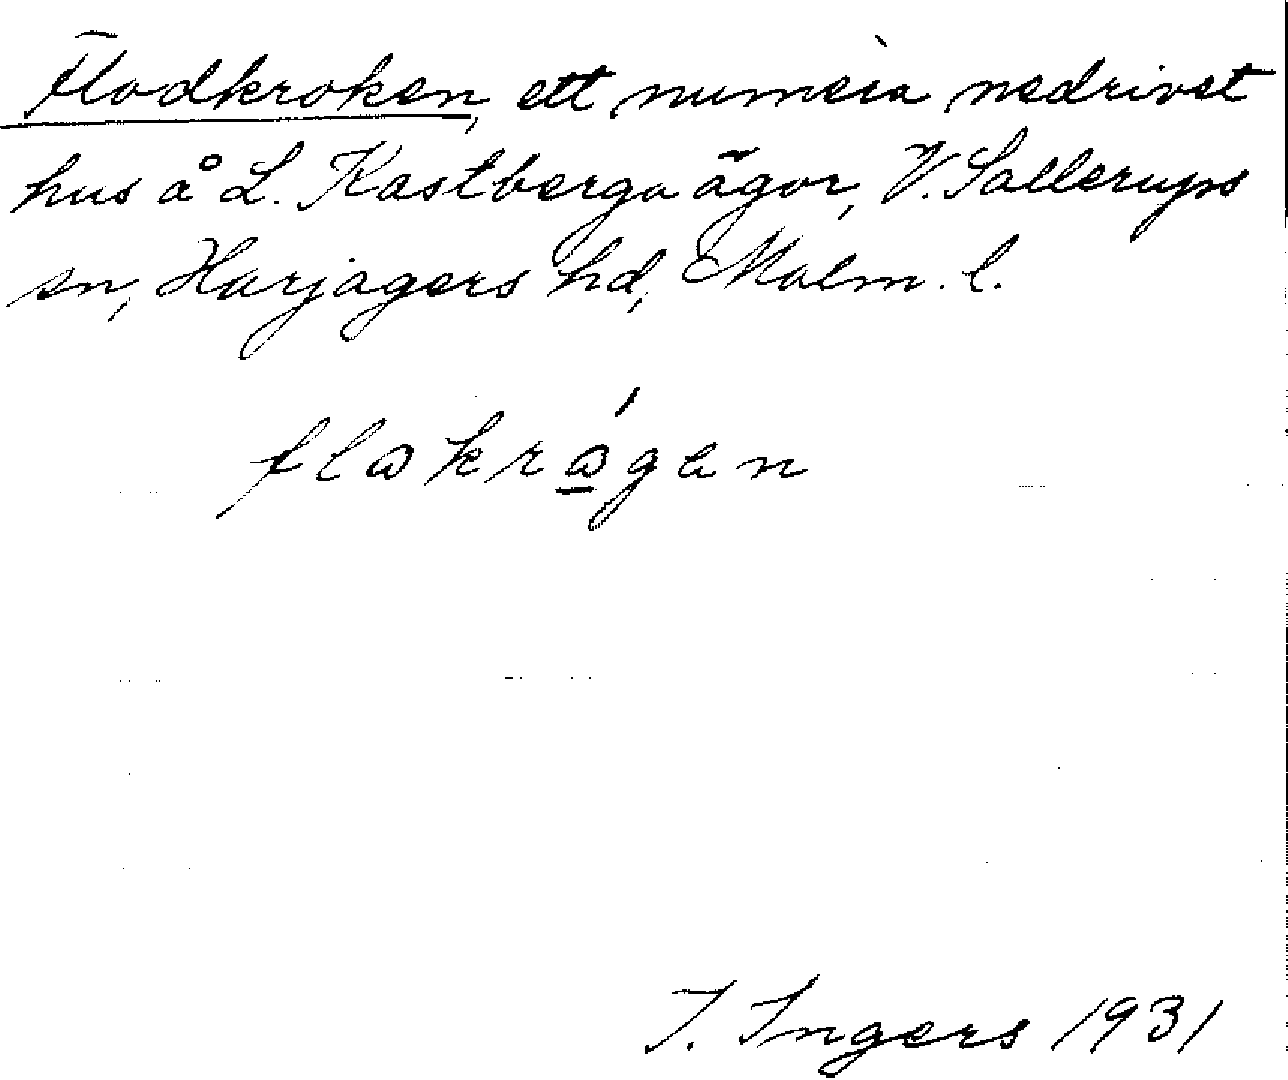 Flodkroken, ett numera nedrivet
hus å L. Kastberga ägor, V. Sallerups
sn, Harjagers hd, Malm. l.
flakrågen
I. Ingers 1931